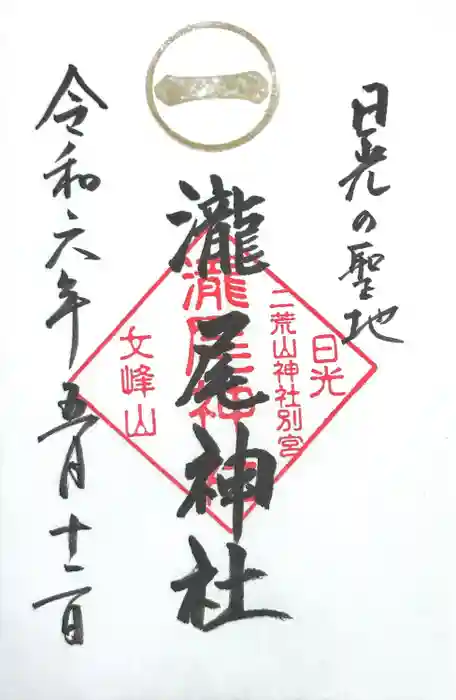 一
日光の聖地
瀧尾神社
令和六年五月十一日
日光
二荒山神社別宮
瀧尾神社
女峰山